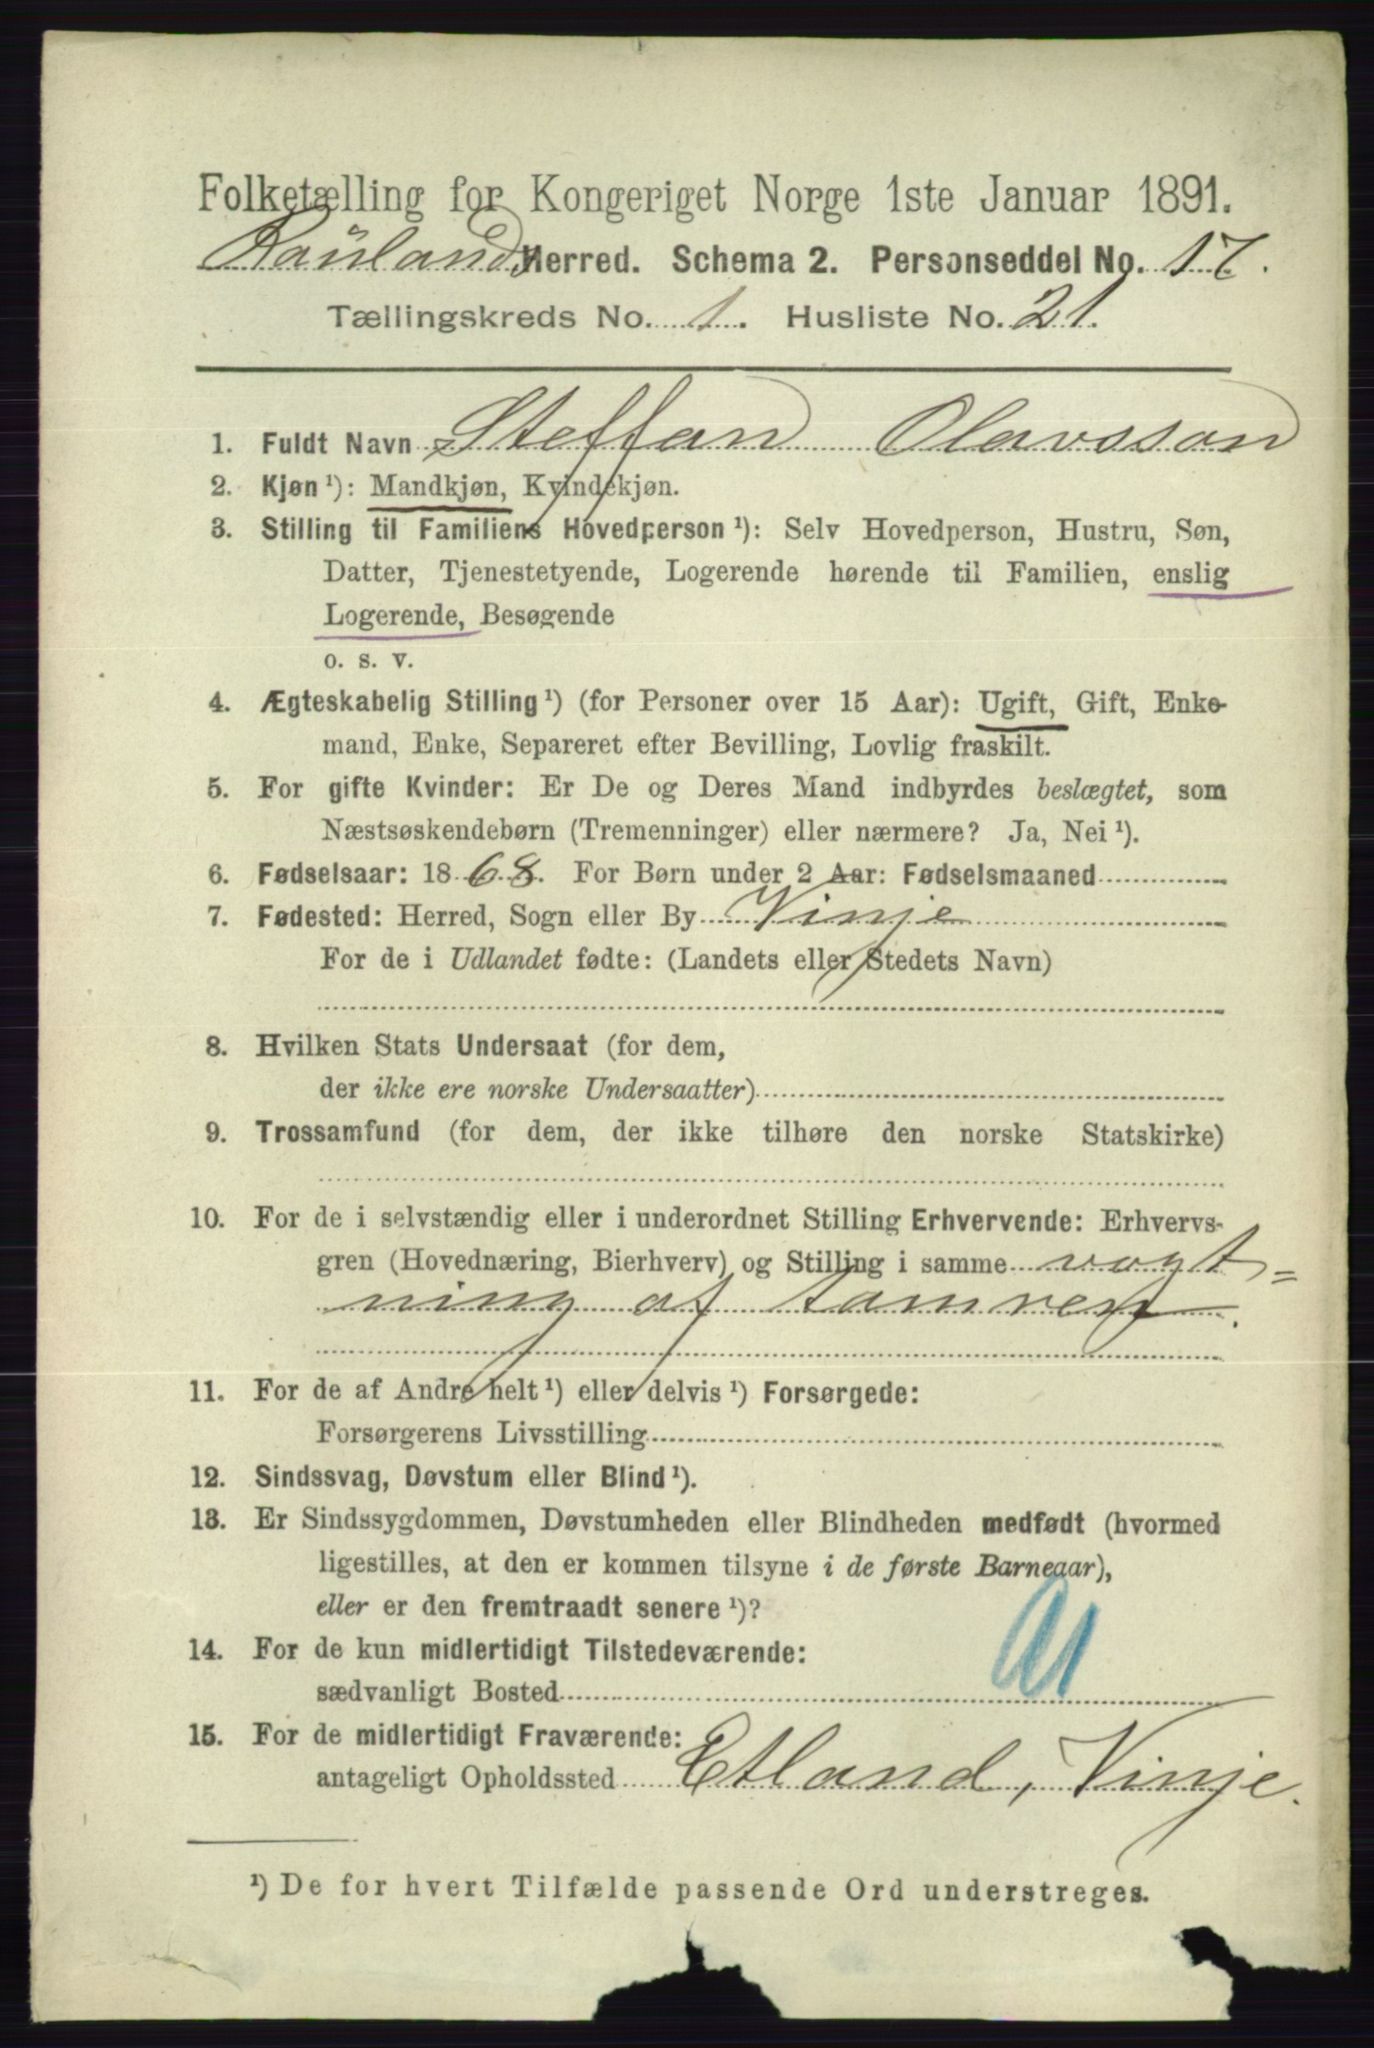 Folketælling for Kongeriget Norge 1ste Januar 1891.
Raulands Herred. Schema 2. Personseddel No. 17.
Tællingskreds No. 1. Husliste No. 21.
1. Fuldt Navn Steffan Olavsson
2. Kjøn ¹): Mandkjøn, Kvindekjøn.
3. Stilling til Familiens Hovedperson ¹): Selv Hovedperson, Hustru, Søn,
Datter, Tjenestetyende, Logerende hørende til Familien, enslig
Logerende, Besøgende
o. s. v.
4. Ægteskabelig Stilling ¹) (for Personer over 15 Aar): Ugift, Gift, Enke-
mand, Enke, Separeret efter Bevilling, Lovlig fraskilt.
5. For gifte Kvinder: Er De og Deres Mand indbyrdes beslægtet, som
Næstsøskendebørn (Tremenninger) eller nærmere? Ja, Nei ¹).
6. Fødselsaar: 1868. For Børn under 2 Aar: Fødselsmaaned
7. Fødested: Herred, Sogn eller By Vinje
For de i Udlandet fødte: (Landets eller Stedets Navn)
8. Hvilken Stats Undersaat (for dem,
der ikke ere norske Undersaatter)
9. Trossamfund (for dem, der ikke tilhøre den norske Statskirke)
10. For de i selvstændig eller i underordnet Stilling Erhvervende: Erhvervs-
gren (Hovednæring, Bierhverv) og Stilling i samme vogt=
ning af tamren.
11. For de af Andre helt ¹) eller delvis ¹) Forsørgede:
Forsørgerens Livsstilling
12. Sindssvag, Døvstum eller Blind ¹).
13. Er Sindssygdommen, Døvstumheden eller Blindheden medfødt (hvormed
ligestilles, at den er kommen tilsyne i de første Barneaar),
eller er den fremtraadt senere ¹)?
14. For de kun midlertidigt Tilstedeværende:
sædvanligt Bosted
15. For de midlertidigt Fraværende:
antageligt Opholdssted Etland, Vinje.
¹) De for hvert Tilfælde passende Ord understreges.